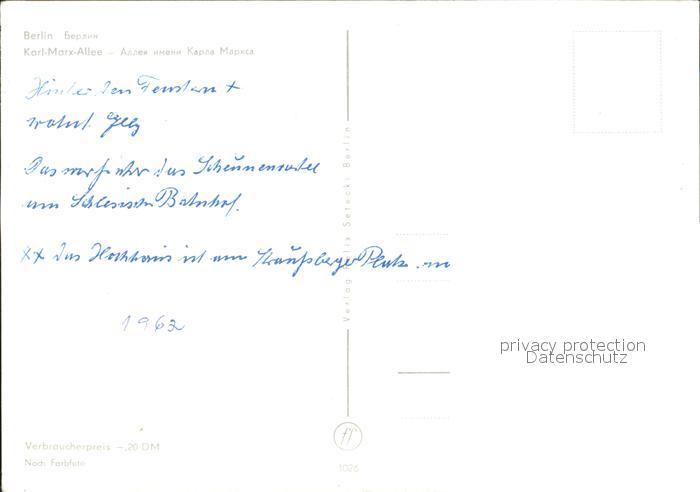 Berlin Берлин
Karl-Marx-Allee – Аллея имени Карла Маркса
Hinter den Fenstern +
wohnt
Das war früher das Scheunenviertel
am Schlesischen Bahnhof.
xx das Hochhaus ist am Straußberger Platz
1962
Verlag Felix Setecki Berlin
privacy protection
Datenschutz
ff
Verbraucherpreis –,20 DM
Nach Farbfoto
1026